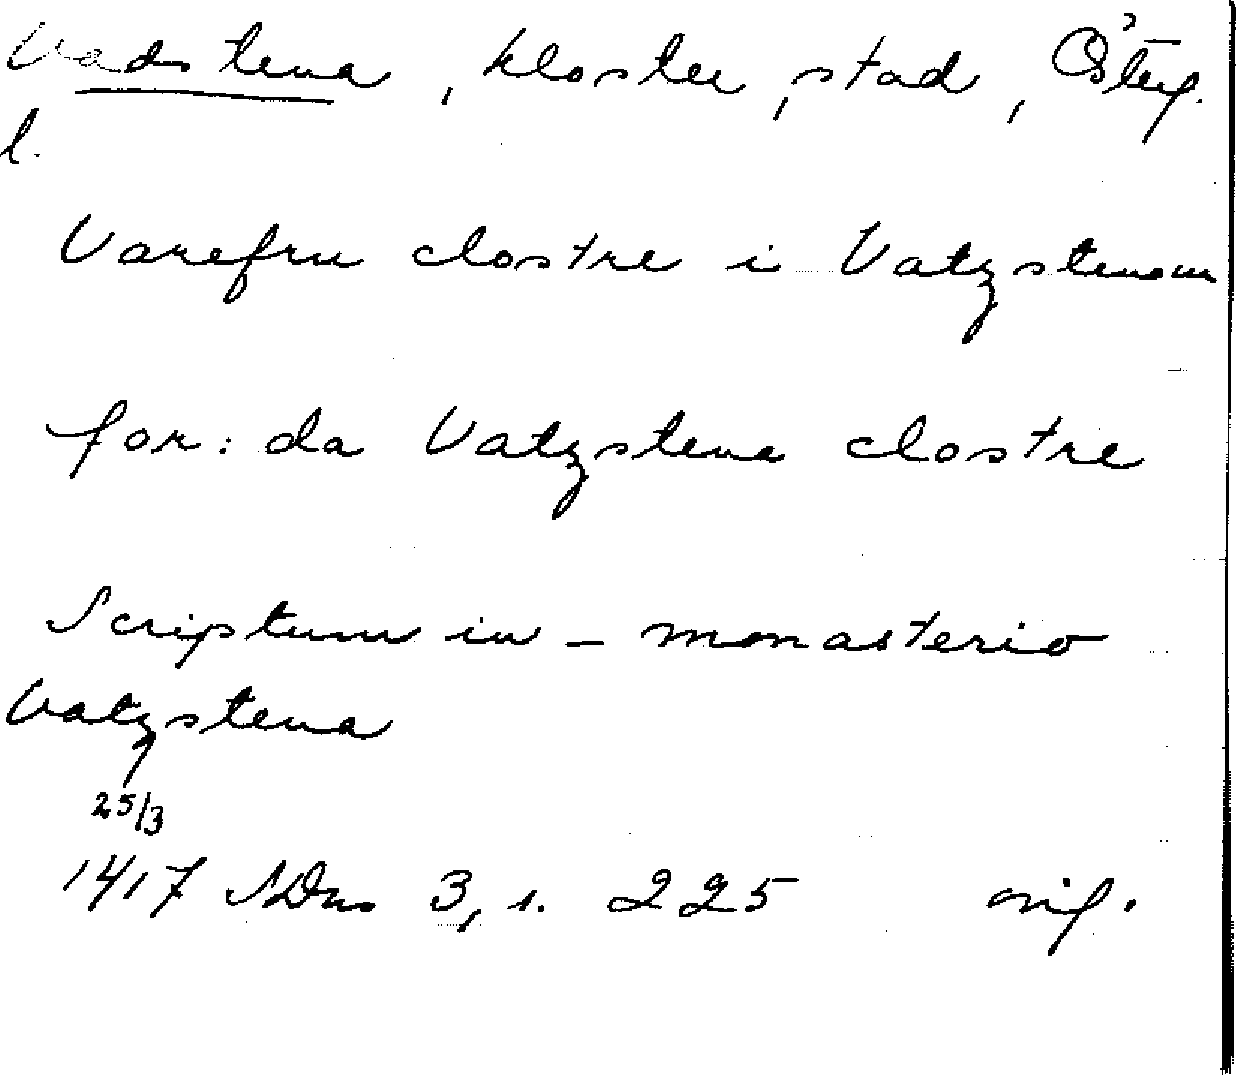 Vadstena, kloster, stad, Österg.
l.
Varefru clostre i Vatzstenom
for: da Vatzstena clostre
Scriptum in – monasterio
Vatzstena
25/3
1417 SDns 3, s. 225 orig.